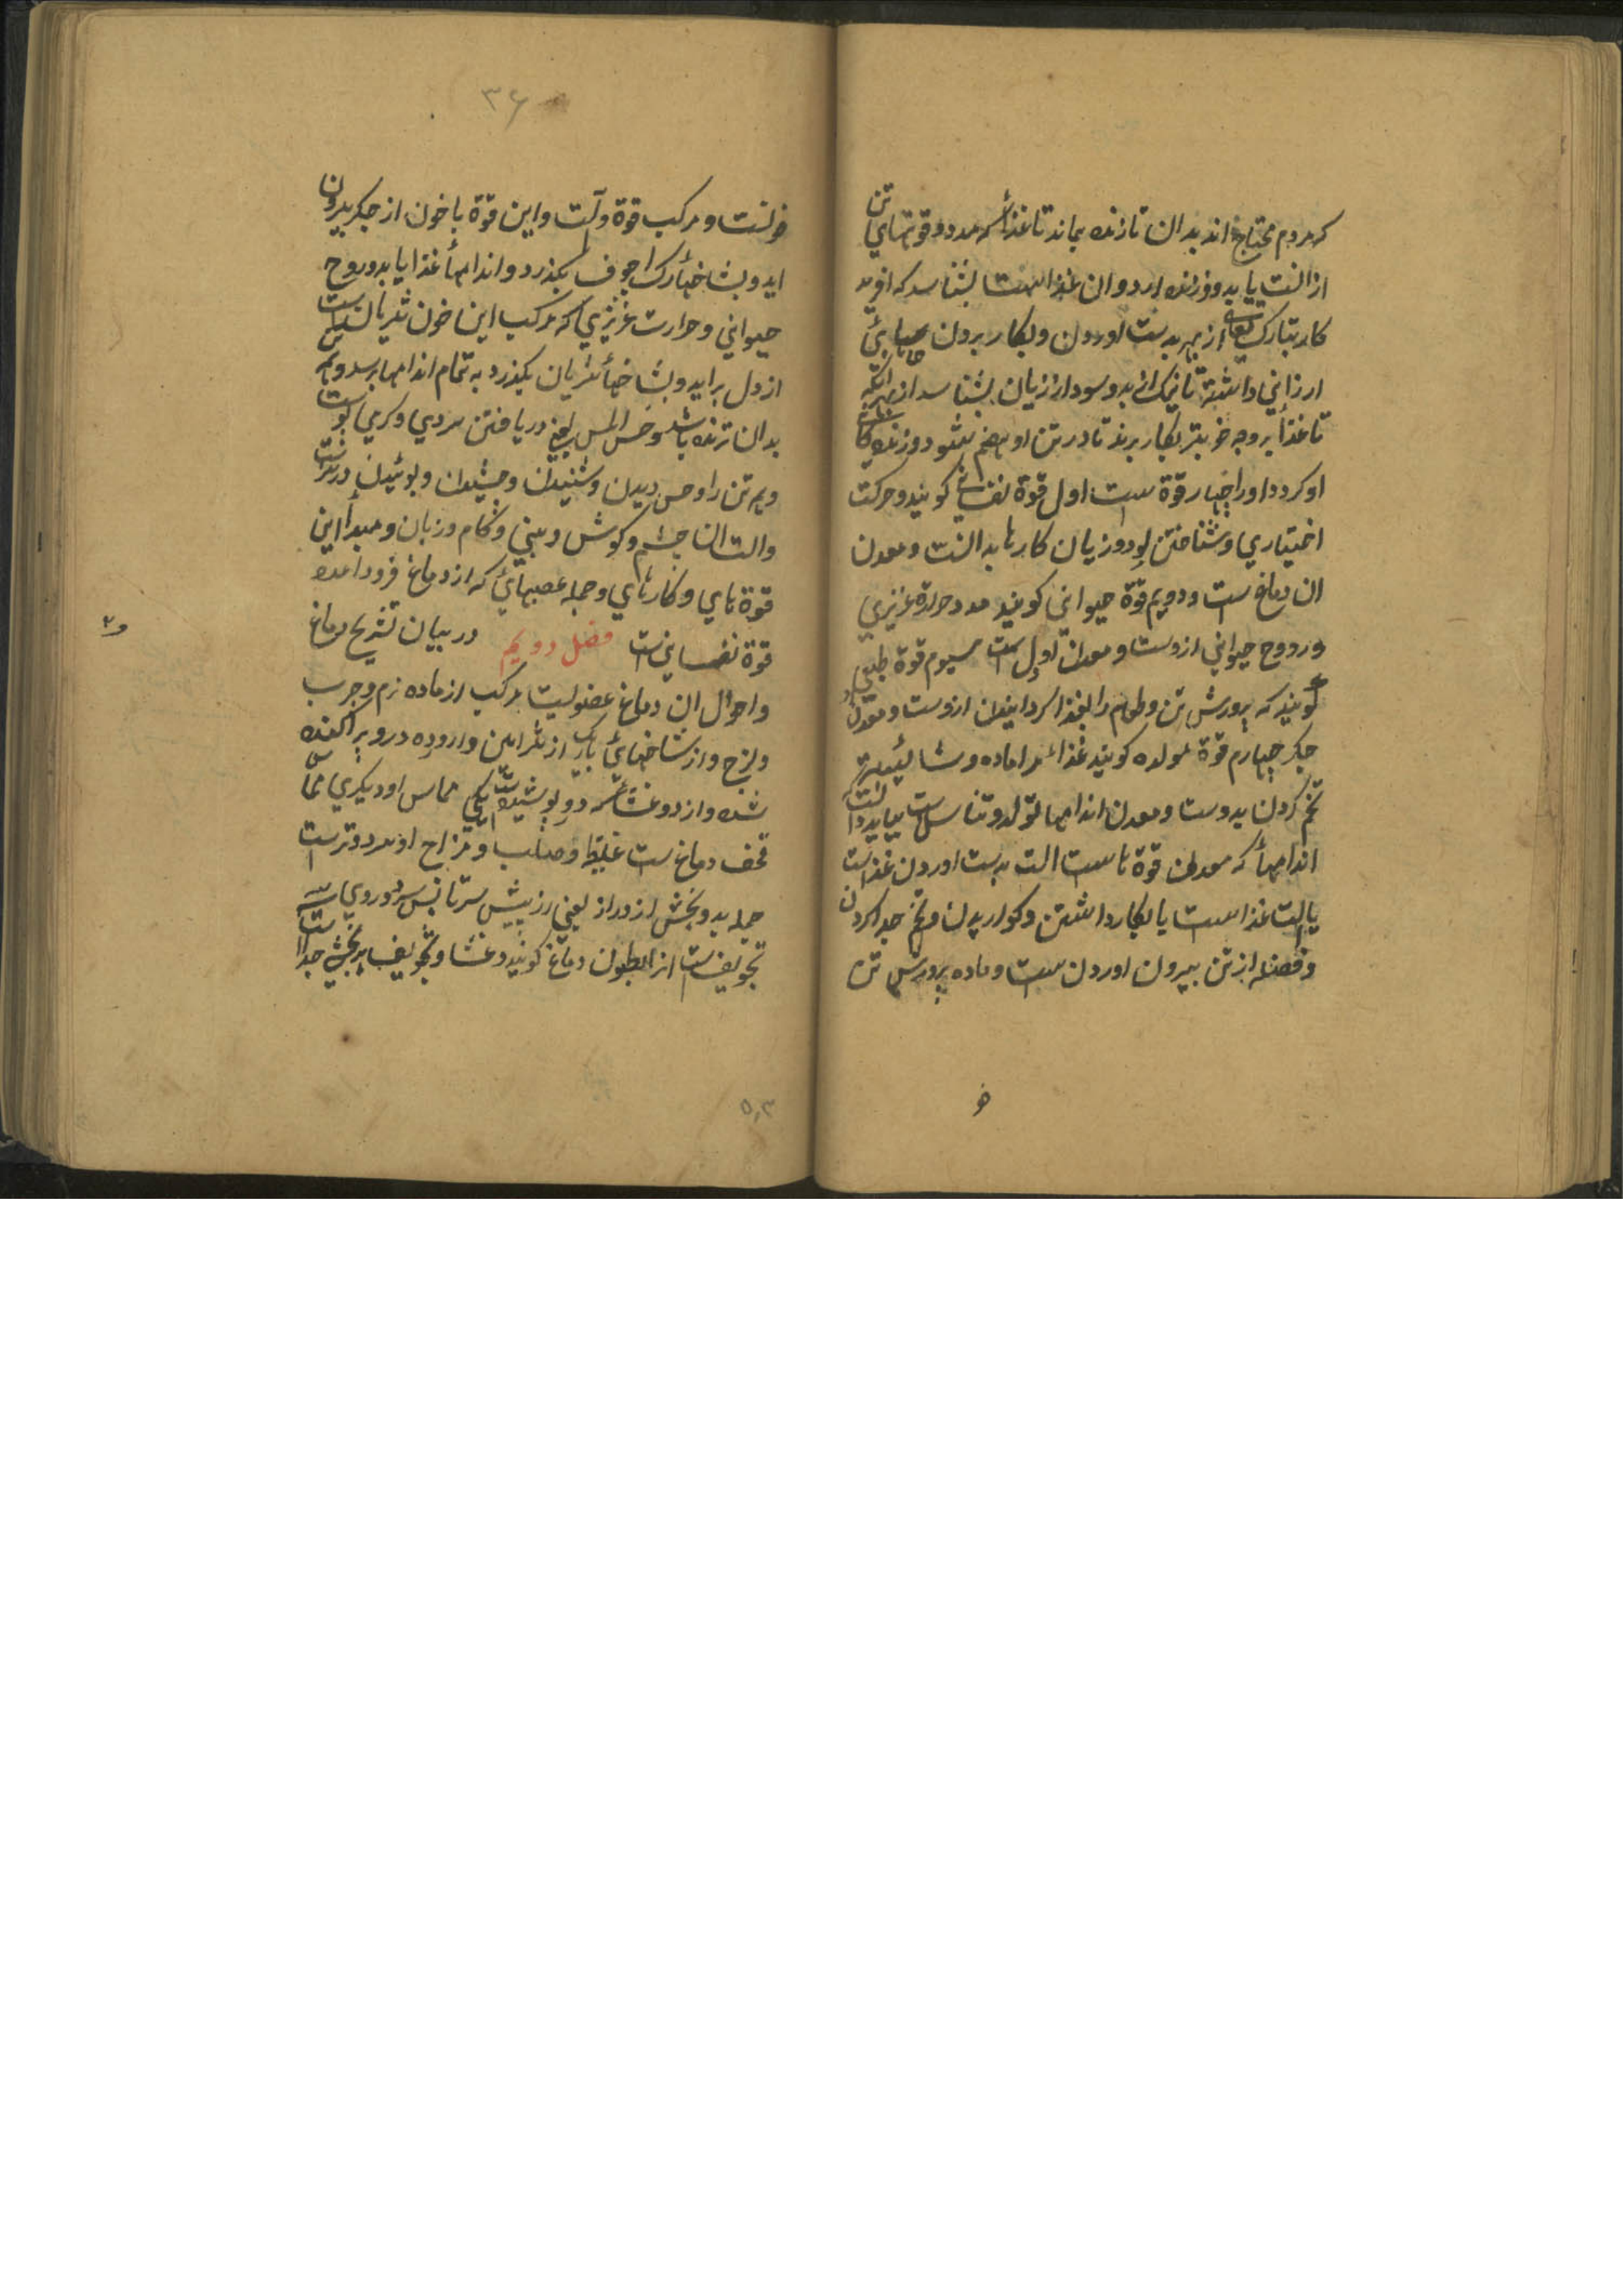 که مردم محتاج اند بدان تا زنده بماند تا غذا که مدد قوتهاي تن
از انست يابد و فرزنده ارد و ان غذا است بشناسد که افريد
کار تبارک تعالي از بهر بدست اوردن و بکار بردن
ارزاني داشته تا نيک از بد و سود از زيان بشناسد از بهر انکه
تا غذا بر وجه خوبتر بکار برند تا در تن او هضم شود و زنده
او کردد و او را چهار قوة است اول قوة نفساني کويند و حرکت
اختياري و شناختن سود و زيان کارها بدانست و معدن
ان دماغ ست و دويم قوة حيواني کويند مدد حرارة غريزي
و روح حيواني ازوست و معدن او دل ست سيوم قوة طبيعي
کويند که پرورش تن و طعام را بغذا کردانيدن ازوست و معدن او
جکر چهارم قوة مولده کويند غذا را اماده و شايسته
تخم کردن بدوست و معدن اندامها تولد و تناسل ست ببايد دانست
اندامها که معدن قوة ها ست الت بدست اوردن غذاست
يا الت غذا است يا بکار داشتن و کواريدن و تخم جدا کردن
و فضله از تن بيرون اوردن ست و ماده پرورش تن
۳۶
خونست و مرکب قوة و آلت و اين قوة با خون از جکر بيرون
ايد و بشاخهأ رک اجوف بکذرد و اندامها غذا يابد و روح
حيواني و حرارت غريزي که مرکب اين خون شريانست
از دل برايد و بشاخهأ شريان بکذرد به تمام اندامها برسد و همه
بدان زنده باشد و حس المس يعني دريافتن سردي و کرمي
و همه تن را و حس ديدن و شنيدن و چشيدن و بوئيدن در سرست
و الت ان چشم و کوش و بيني و کام و زبان و مبدأ اين
قوة هاي و کارهاي و جمله عصبهائ که از دماغ فرود امده
قوة نفساني ست فصل دويم در بيان تشريح دماغ
و احوال ان دماغ عضويست مرکب از ماده نرم و چرب
و لزج و از شاخهائ باريک از شرائين و اورده درو پراکنده
شده و از دو غشا که درو پوشيده ست يکي مماس او ديکري مماس
قحف دماغ ست غليظ و صلب و مزاج او سرد و ترست
جمله بدو بخش از دراز يعني از پيش سر تا پس سر و دروي سه
تجويف ست انرا بطون دماغ کويند و غشا و تجويف هر بخش جدا ست